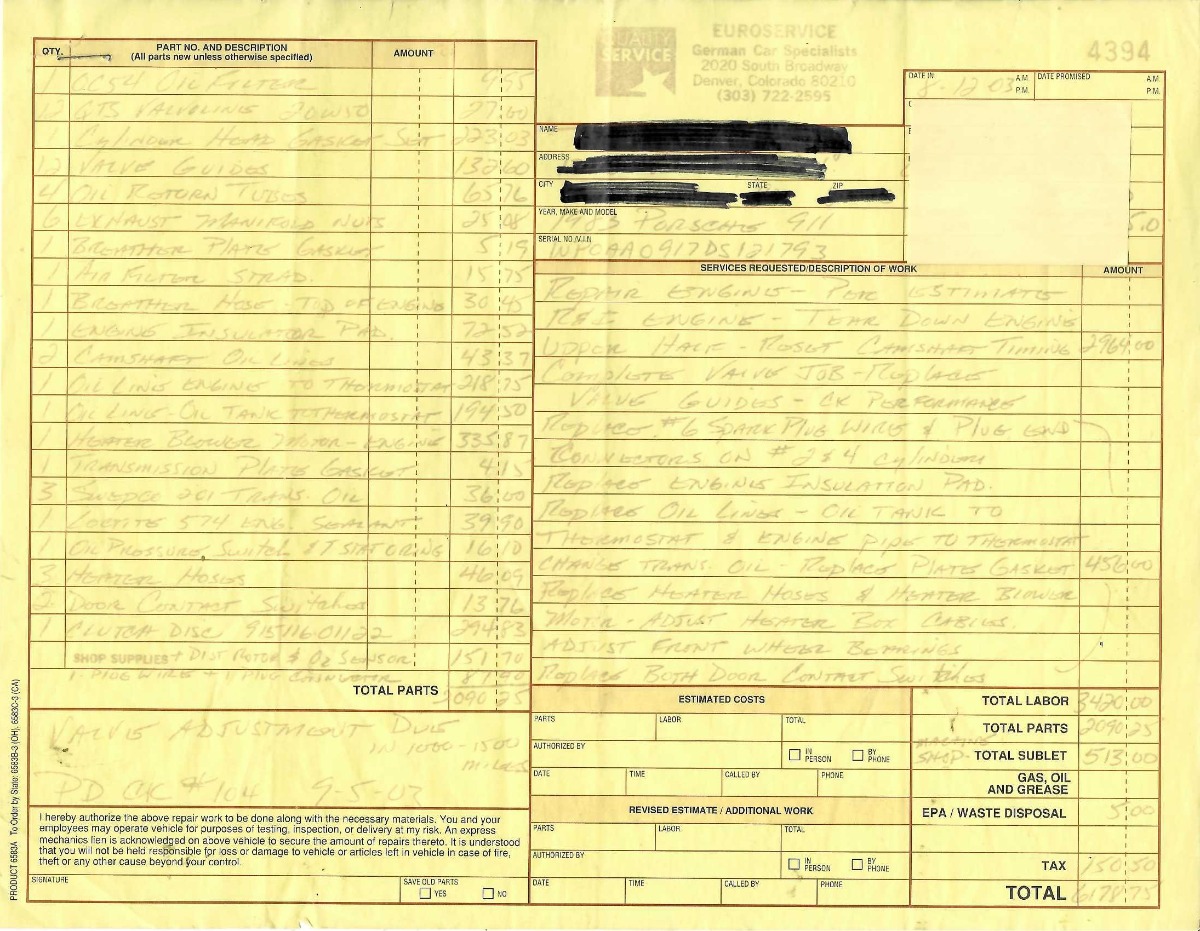 EUROSERVICE
German Car Specialists
2020 South Broadway
Denver, Colorado 80210
(303) 722-2595
QUALITY SERVICE
4394
QTY. PART NO. AND DESCRIPTION AMOUNT
(All parts new unless otherwise specified)
1 OC54 OIL FILTER 4.95
12 QTS VALVOLINE 20W50 27.60
1 CYLINDER HEAD GASKET SET 223.03
12 VALVE GUIDES 132.60
4 OIL RETURN TUBES 65.76
6 EXHAUST MANIFOLD NUTS 25.08
1 BREATHER PLATE GASKET 5.19
1 AIR FILTER STRAD. 15.75
1 BREATHER HOSE - TOP OF ENGINE 30.45
1 ENGINE INSULATOR PAD. 72.52
2 CAMSHAFT OIL LINES 43.37
1 OIL LINE ENGINE TO THERMOSTAT 218.75
1 OIL LINE - OIL TANK TO THERMOSTAT 194.50
1 HEATER BLOWER MOTOR - ENGINE 335.87
1 TRANSMISSION PLATE GASKET 4.15
3 SWEPCO 201 TRANS. OIL 36.00
1 LOCTITE 574 ENG. SEALANT 39.90
1 OIL PRESSURE SWITCH 16.10
3 HEATER HOSES 46.09
2 DOOR CONTACT SWITCHES 13.76
1 CLUTCH DISC 915 116 011 22 294.83
SHOP SUPPLIES + DIST ROTOR & O2 SENSOR 151.70
1 - PLUG WIRE + 1 PLUG CONNECTOR
TOTAL PARTS 2090.25
VALVE ADJUSTMENT DUE
IN 1000-1500
MILES
PD CK #104 9-5-03
I hereby authorize the above repair work to be done along with the necessary materials. You and your
employees may operate vehicle for purposes of testing, inspection, or delivery at my risk. An express
mechanics lien is acknowledged on above vehicle to secure the amount of repairs thereto. It is understood
that you will not be held responsible for loss or damage to vehicle or articles left in vehicle in case of fire,
theft or any other cause beyond your control.
SIGNATURE SAVE OLD PARTS YES NO
PRODUCT 6583A To Order by State: 6583B-3 (OH), 6583C-3 (CA)
DATE IN 8-12-03 A.M. P.M. DATE PROMISED A.M. P.M.
NAME
ADDRESS
CITY STATE ZIP
YEAR, MAKE AND MODEL
1983 PORSCHE 911
SERIAL NO./V.I.N.
WPOAA0917DS121793
SERVICES REQUESTED/DESCRIPTION OF WORK AMOUNT
REPAIR ENGINE - PER ESTIMATE
R&I ENGINE - TEAR DOWN ENGINE
UPPER HALF - RESET CAMSHAFT TIMING 2964.00
COMPLETE VALVE JOB - REPLACE
VALVE GUIDES - CK PERFORMANCE
REPLACE #6 SPARK PLUG WIRE & PLUG END
CONNECTORS ON #2 & 4 CYLINDER
REPLACE ENGINE INSULATION PAD.
REPLACE OIL LINES - OIL TANK TO
THERMOSTAT & ENGINE PIPE TO THERMOSTAT
CHANGE TRANS. OIL - REPLACE PLATE GASKET 456.00
REPLACE HEATER HOSES & HEATER BLOWER
MOTOR - ADJUST HEATER BOX CABLES.
ADJUST FRONT WHEEL BEARINGS
REPLACE BOTH DOOR CONTACT SWITCHES
ESTIMATED COSTS
PARTS LABOR TOTAL
AUTHORIZED BY IN PERSON BY PHONE
DATE TIME CALLED BY PHONE
REVISED ESTIMATE / ADDITIONAL WORK
PARTS LABOR TOTAL
AUTHORIZED BY IN PERSON BY PHONE
DATE TIME CALLED BY PHONE
TOTAL LABOR 3420.00
TOTAL PARTS 2090.25
MACHINE SHOP - TOTAL SUBLET 513.00
GAS, OIL AND GREASE
EPA / WASTE DISPOSAL 5.00
TAX 150.50
TOTAL 6178.75